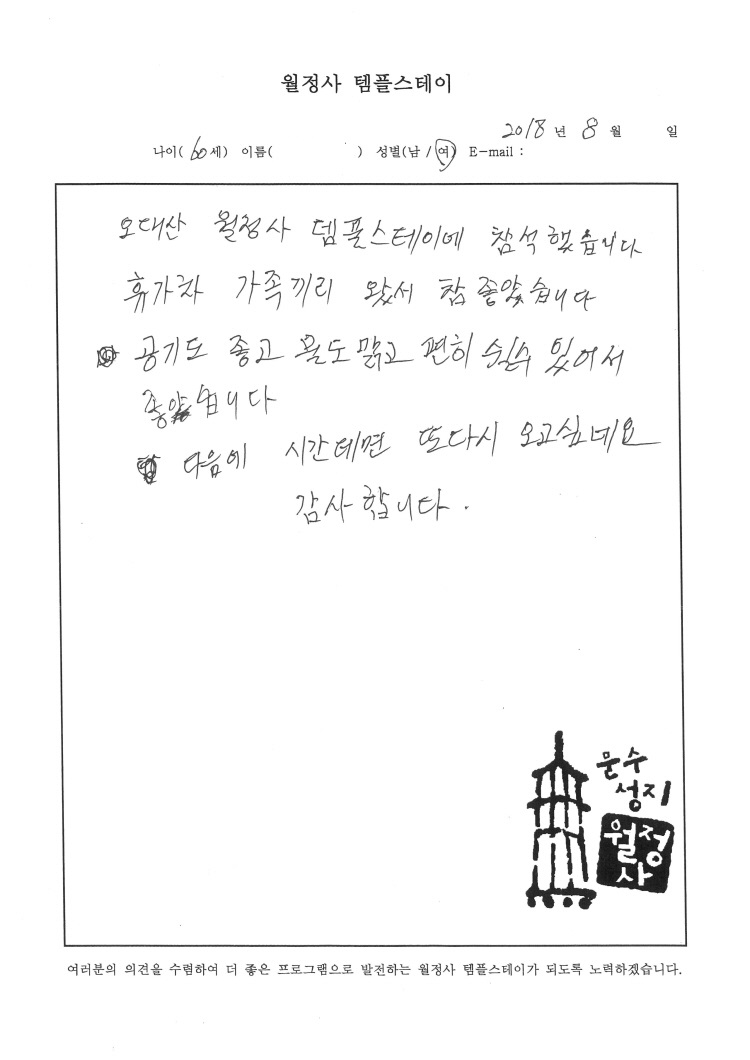 월정사 템플스테이
2018 년 8 월 일
나이( 60 세) 이름( ) 성별(남 / 여) E-mail :
오대산 월정사 템플스테이에 참석했읍니다
휴가차 가족끼리 왔서 참 좋았습니다
공기도 좋고 물도 맑고 편히 쉴수 있어서
좋았습니다
다음에 시간데면 또다시 오고싶네요
감사합니다.
문수
성지
월정
사
여러분의 의견을 수렴하여 더 좋은 프로그램으로 발전하는 월정사 템플스테이가 되도록 노력하겠습니다.